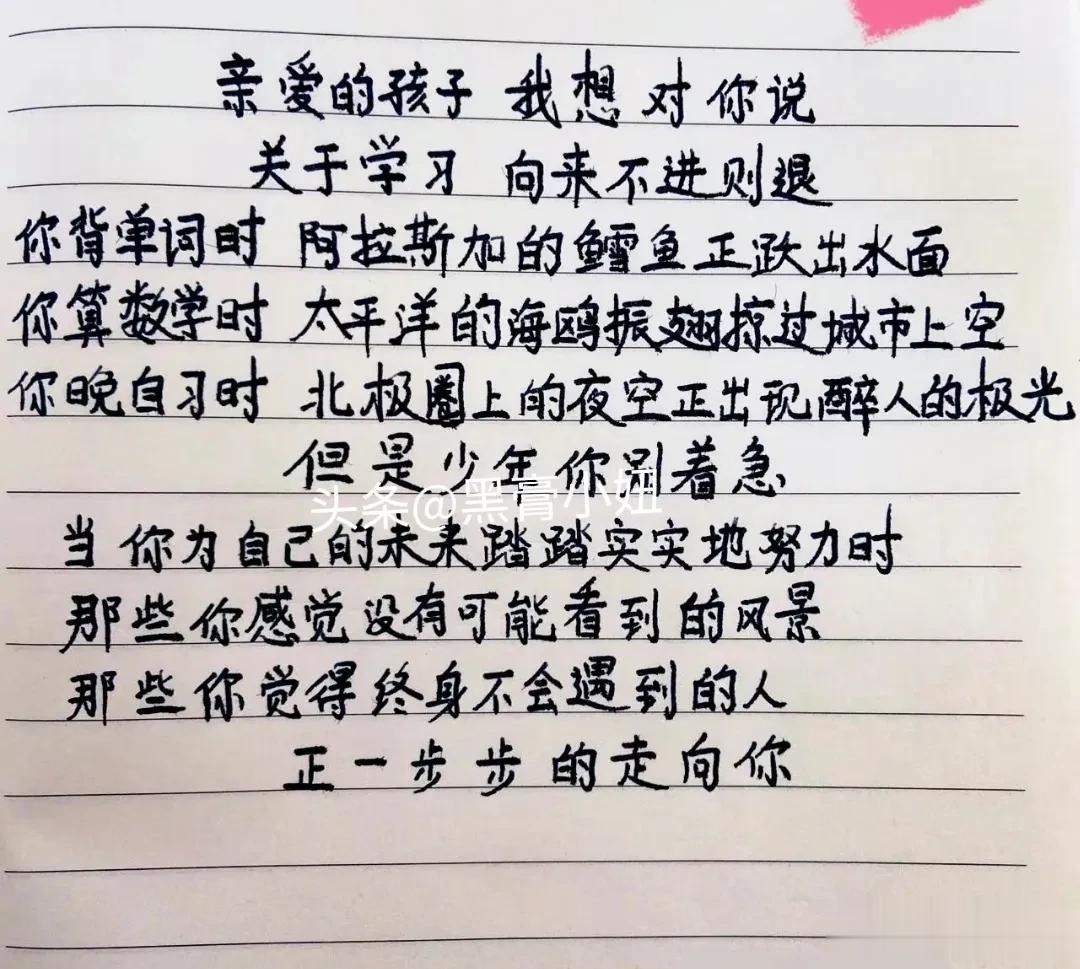 亲爱的孩子 我想对你说
关于学习 向来不进则退
你背单词时 阿拉斯加的鳕鱼正跃出水面
你算数学时 太平洋的海鸥振翅掠过城市上空
你晚自习时 北极圈上的夜空正出现醉人的极光
但是少年你别着急
头条@黑膏小妞
当你为自己的未来踏踏实实地努力时
那些你感觉没有可能看到的风景
那些你觉得终身不会遇到的人
正一步步的走向你